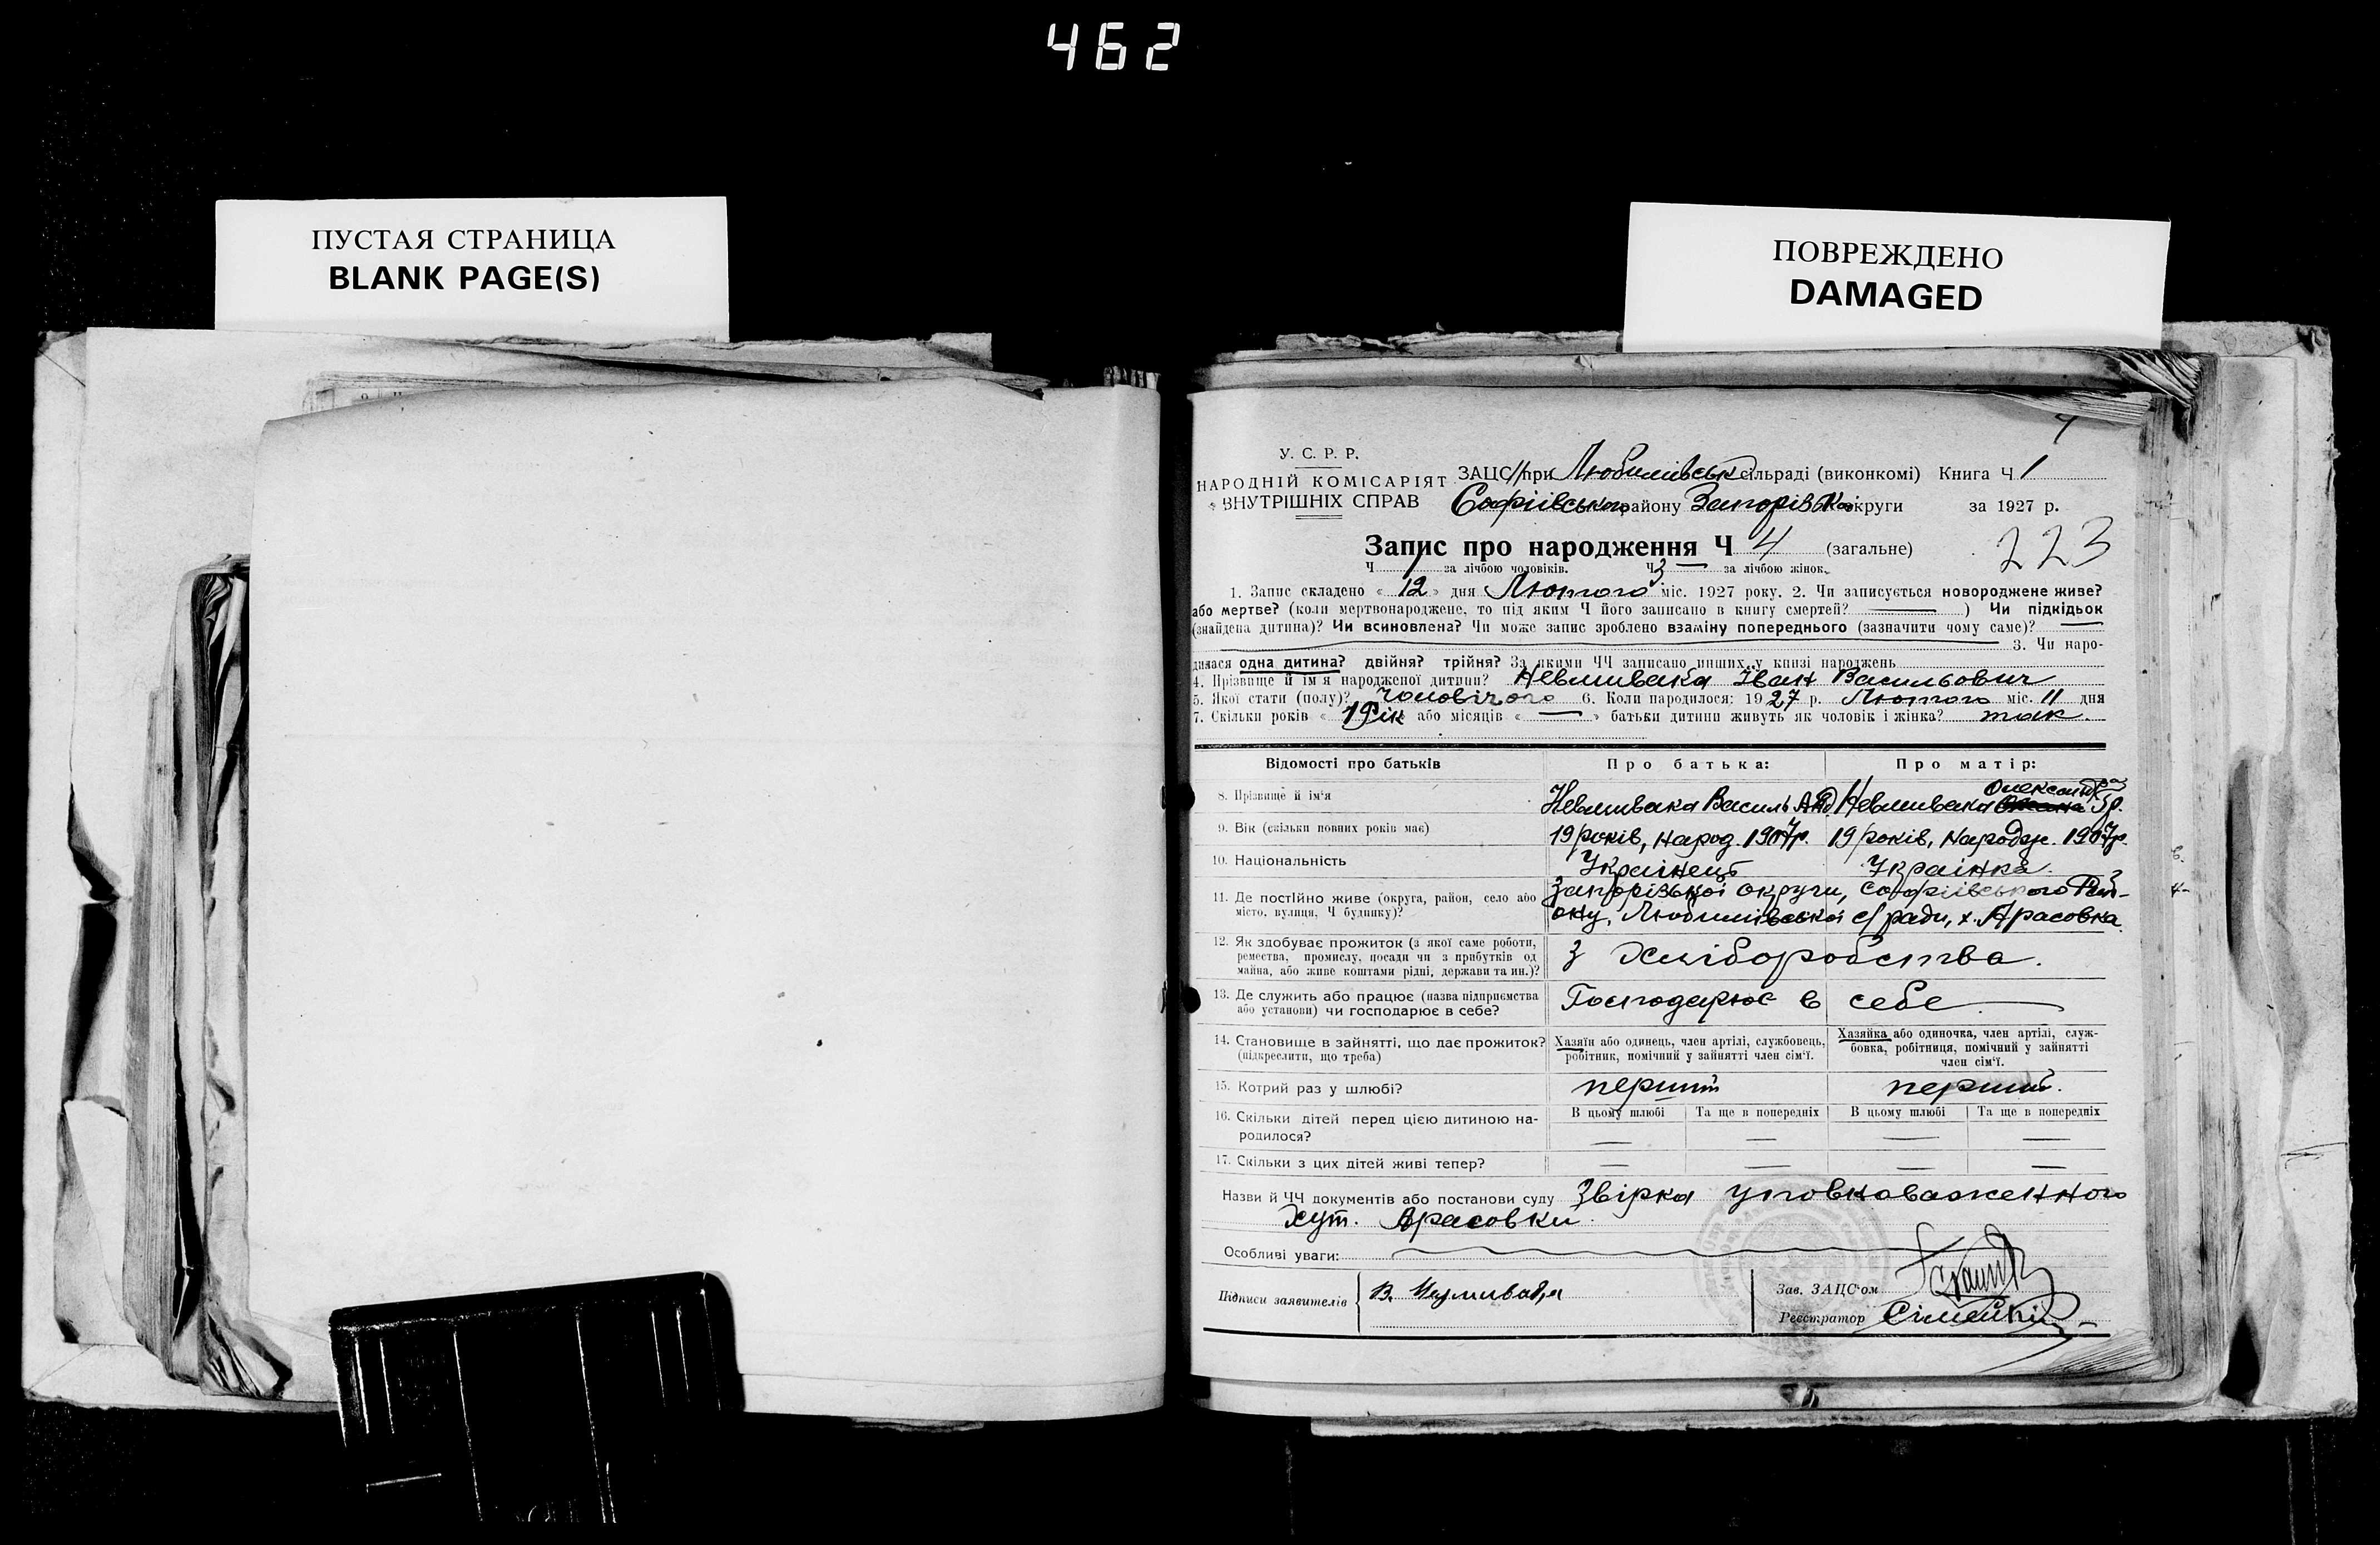 462
ПУСТАЯ СТРАНИЦА
BLANK PAGE(S)
ПОВРЕЖДЕНО
DAMAGED
4
У. С. Р. Р.
НАРОДНІЙ КОМІСАРІЯТ
ВНУТРІШНІХ СПРАВ
ЗАЦС при Любимівськ сільраді (виконкомі) Книга Ч 1
Софіївського району Запорізьк округи за 1927 р.
Запис про народження Ч 4 (загальне)
223
Ч 1 за лічбою чоловіків. Ч — за лічбою жінок.
1. Запис складено « 12 » дня Лютого міс. 1927 року. 2. Чи записується новороджене живе?
або мертве? (коли мертвонароджене, то під яким Ч його записано в книгу смертей? —) Чи підкідьок
(знайдена дитина)? Чи всиновлена? Чи може запис зроблено взаміну попереднього (зазначити чому саме)? —
3. Чи наро-
дилася одна дитина? двійня? трійня? За якими ЧЧ записано инших у книзі народжень
4. Прізвище й ім'я народженої дитини? Невмивака Іван Васильович
5. Якої стати (полу)? Чоловічого 6. Коли народилося: 1927 р. Лютого міс. 11 дня
7. Скільки років « 1 рік або місяців « — » батьки дитини живуть як чоловік і жінка? так.
Відомості про батьків Про батька: Про матір:
8. Прізвище й ім'я Невмивака Василь Невмивака Олександра
9. Вік (скільки повних років має) 19 років, народ. 1907р. 19 років, народж. 1907р.
10. Національність Украінець Украінка.
11. Де постійно живе (округа, район, село або Запорізькоі округи, Софіівського Рай-
місто, вулиця, Ч будинку)? ону, Любимівськоі с/ради, х. Арасовка.
12. Як здобуває прожиток (з якої саме роботи,
ремества, промислу, посади чи з прибутків од
майна, або живе коштами рідні, держави та ин.)? З Хліборобства.
13. Де служить або працює (назва підприємства
або установи) чи господарює в себе? Господарює в себе
14. Становище в зайнятті, що дає прожиток?
(підкреслити, що треба)
Хазяїн або одинець, член артілі, службовець,
робітник, помічний у зайнятті член сім'ї.
Хазяйка або одиночка, член артілі, служ-
бовка, робітниця, помічний у зайнятті
член сім'ї.
15. Котрий раз у шлюбі? перший перший.
16. Скільки дітей перед цією дитиною на-
родилося?
В цьому шлюбі Та ще в попередніх В цьому шлюбі Та ще в попередніх
— — — —
17. Скільки з цих дітей живі тепер? — — — —
Назви й ЧЧ документів або постанови суду Звірка уповноваженного
Хут. Арасовки.
Особливі уваги:
Підписи заявителів В.
Зав. ЗАЦС'ом
Реєстратор